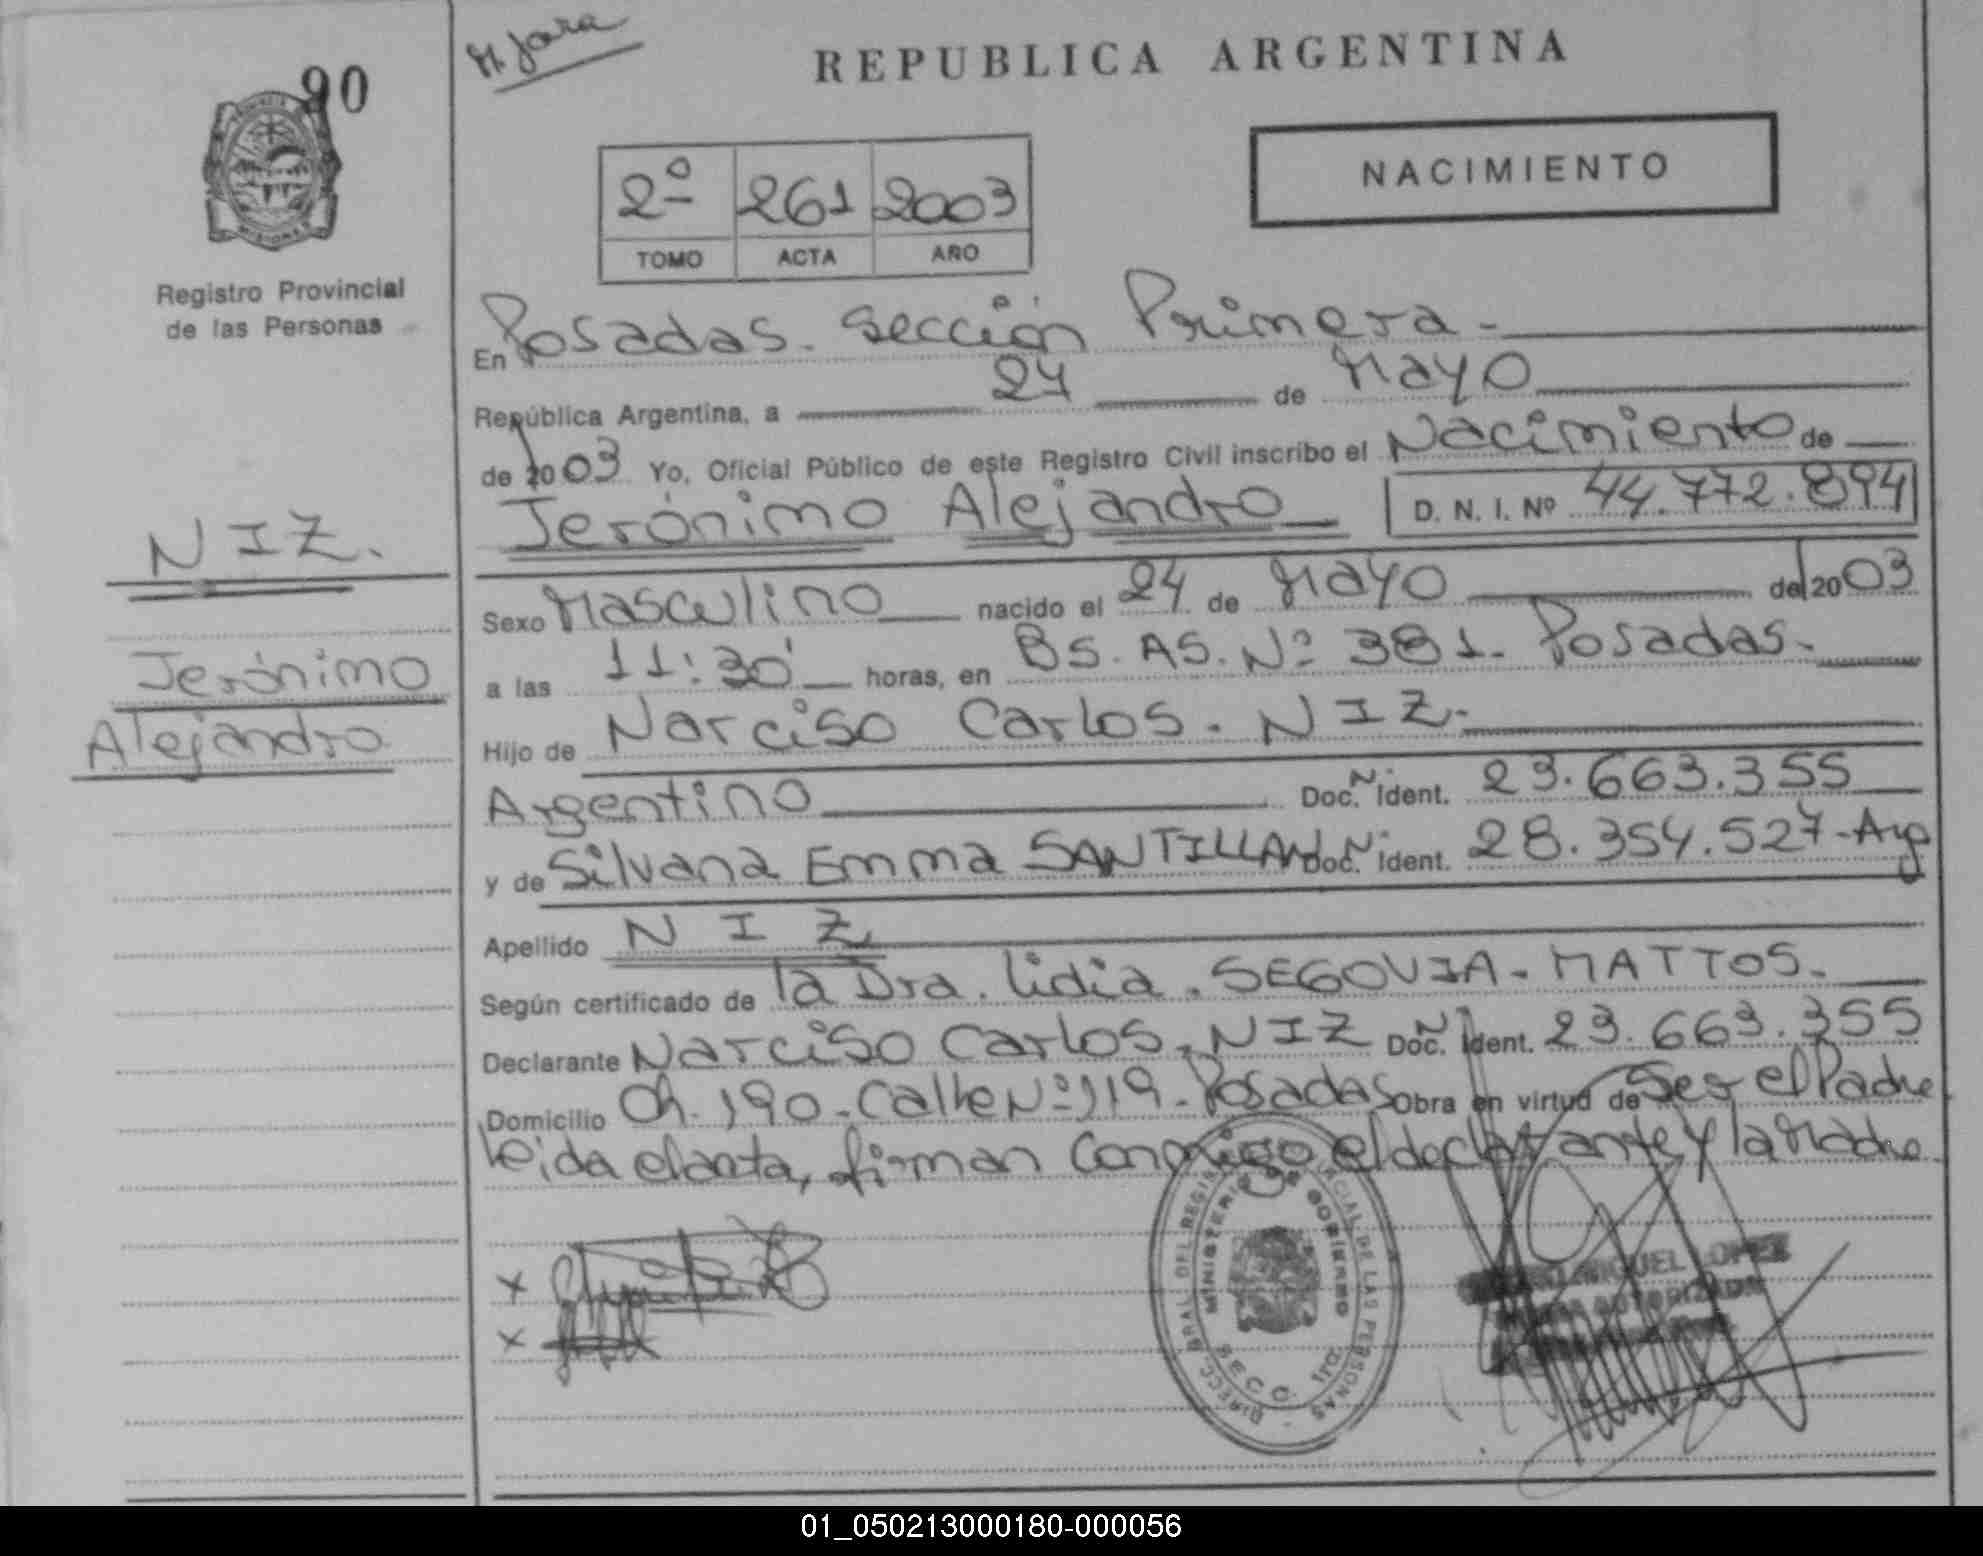 90
M. Jara
REPUBLICA ARGENTINA
NACIMIENTO
2º 261 2003
TOMO ACTA AÑO
Registro Provincial
de las Personas
En Posadas. Sección Primera -
República Argentina, a 24 de Mayo
de 2003 Yo, Oficial Público de este Registro Civil inscribo el Nacimiento de
Jerónimo Alejandro D. N. I. Nº 44.772.894
NIZ.
Jerónimo
Alejandro
Sexo Masculino nacido el 24 de Mayo de 2003
a las 11:30 horas, en Bs. As. Nº 381. Posadas.
Hijo de Narciso Carlos. NIZ-
Argentino Doc. Ident. 23.663.355
y de Silvana Emma SANTILLAN Doc. N Ident. 28.354.527-Arg
Apellido NIZ
Según certificado de la Dra. Lidia. SEGOVIA-MATTOS.
Declarante Narciso Carlos. NIZ Doc. Ident. 23.663.355
Domicilio Ch. 190-Calle Nº 119-Posadas Obra en virtud de Ser el Padre
leida el acta, firman conmigo el declarante y la Madre
MINISTERIO DE GOBIERNO
SECC. 1ra.
MIGUEL LOPEZ
AUTORIZADA
01_050213000180-000056